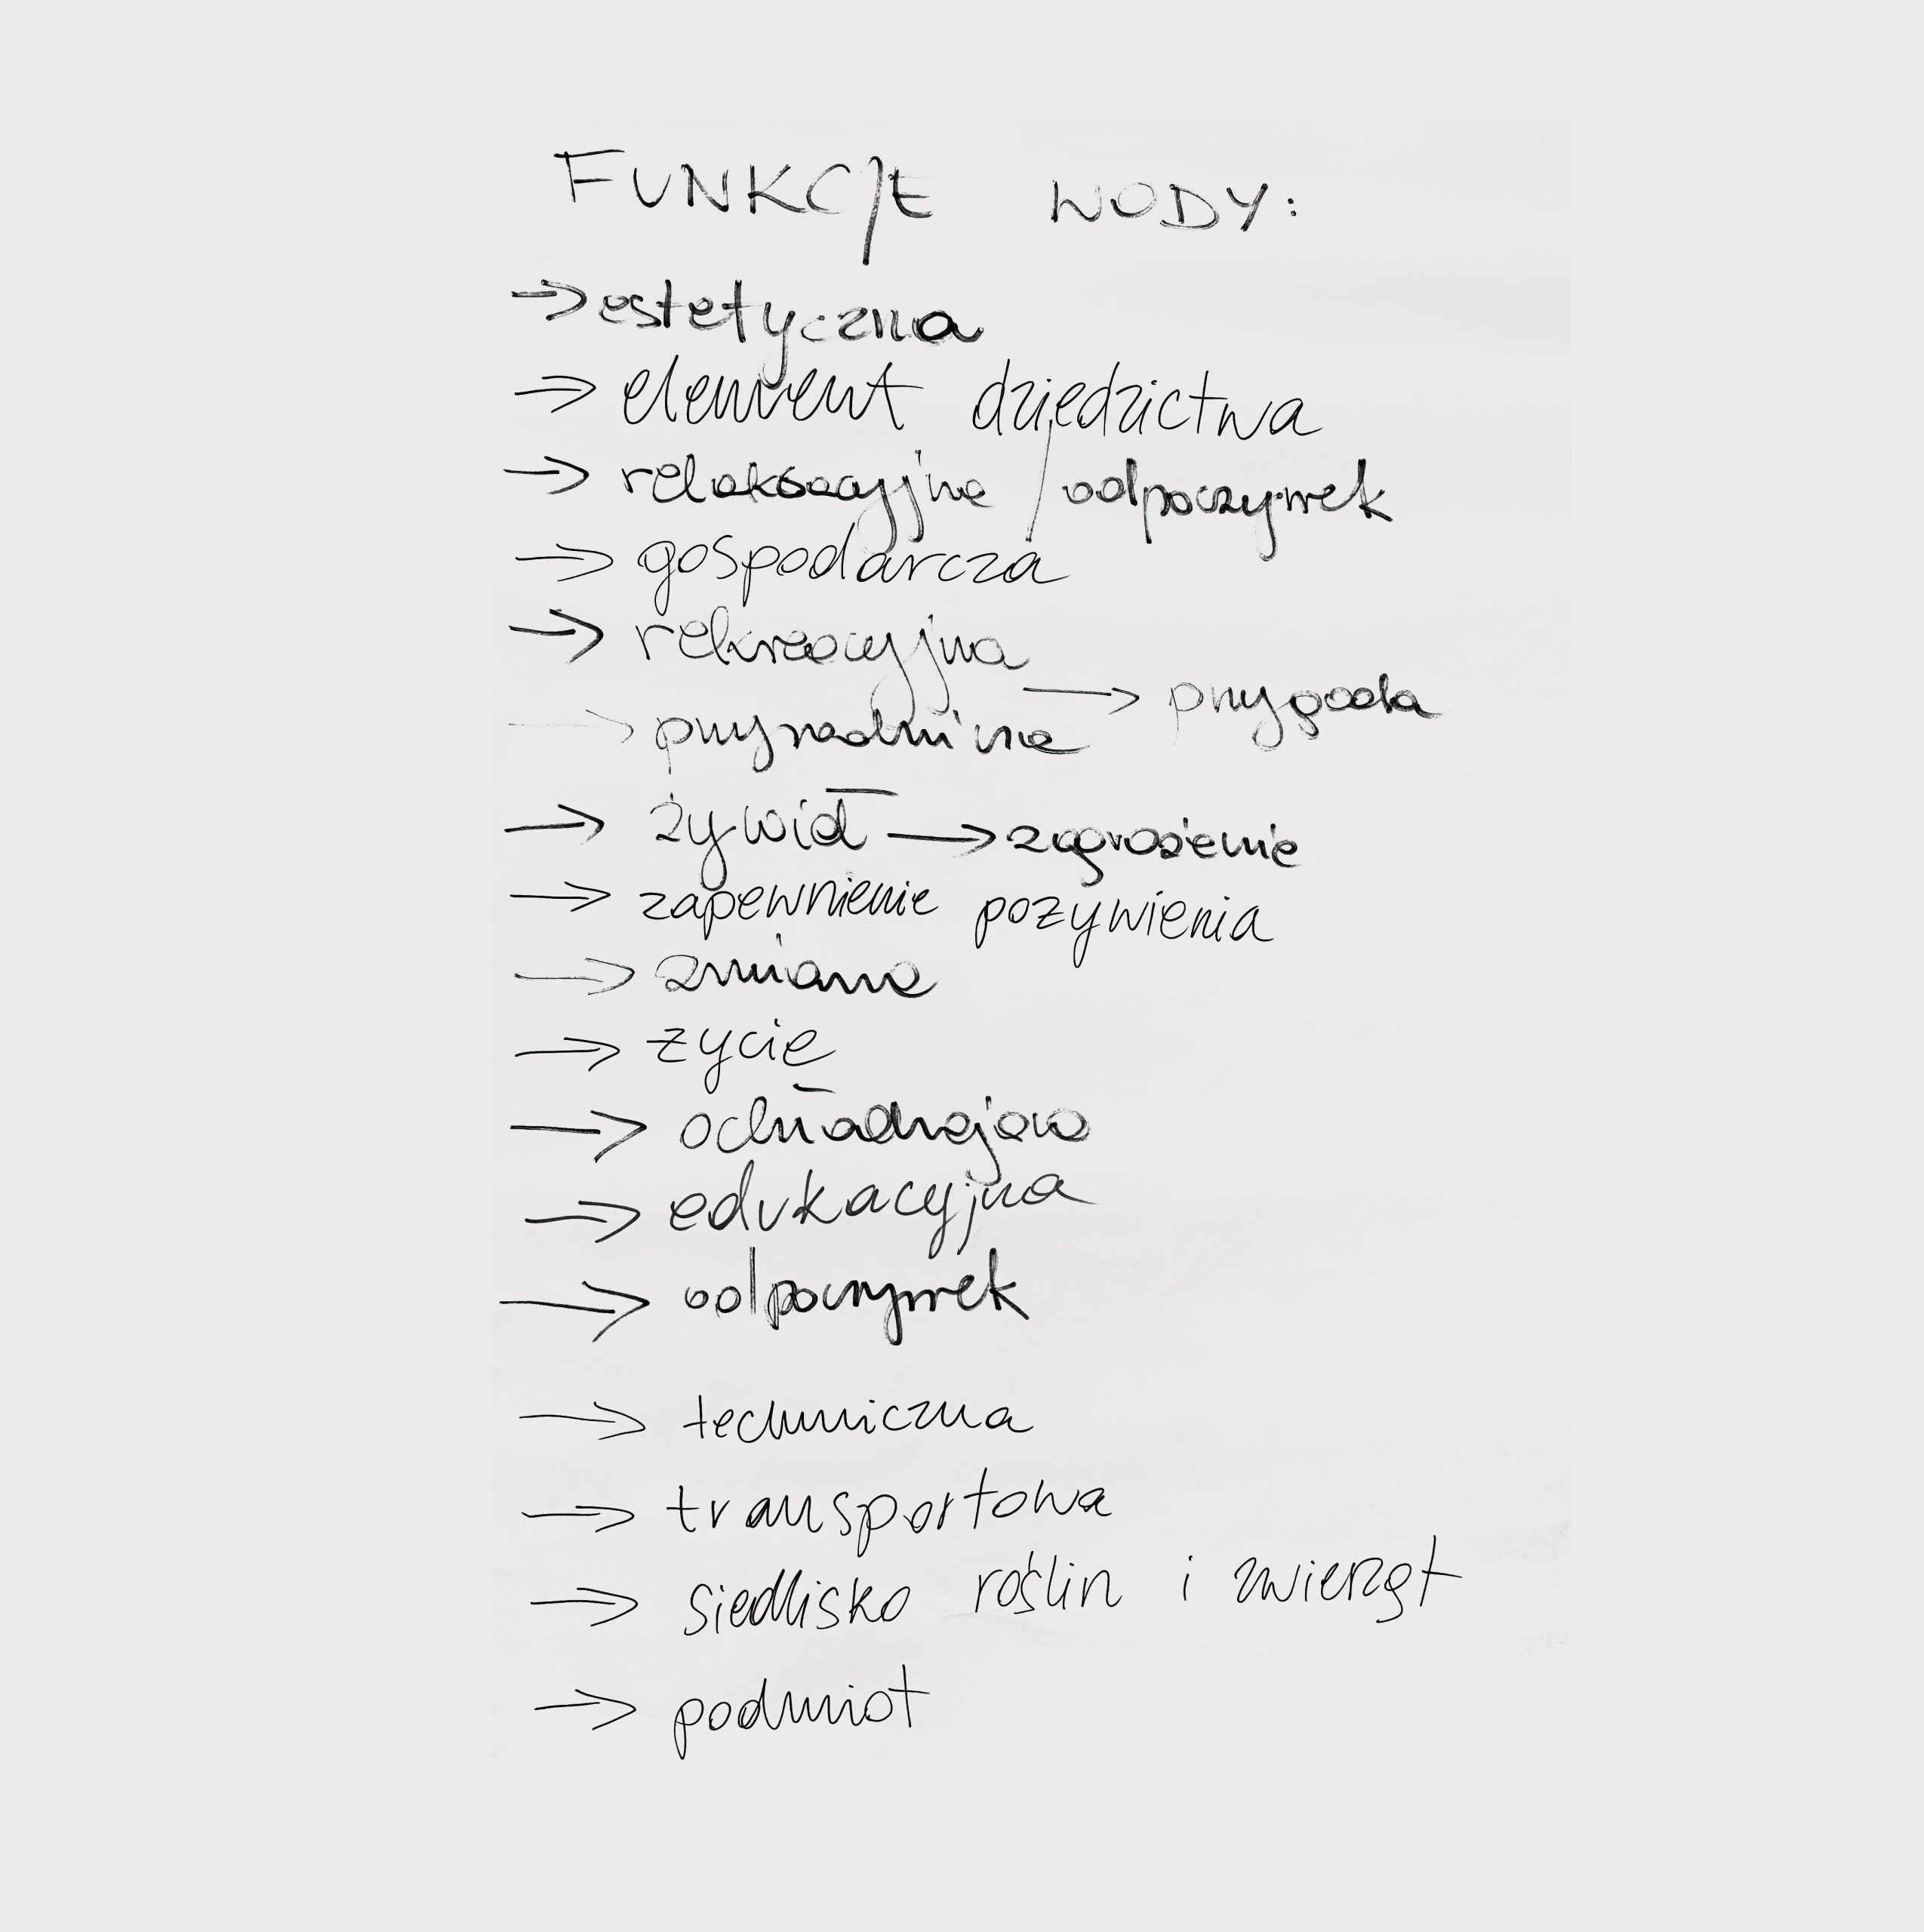 FUNKCJE WODY:
→ estetyczna
→ element dziedzictwa
→ relaksacyjna / odpoczynek
→ gospodarcza
→ rekreacyjna
→ przygoda
→
→ żywioł → zagrożenie
→ zapewnienie pożywienia
→ zmiana
→ życie
→
→ edukacyjna
→ odpoczynek
→ techniczna
→ transportowa
→ siedlisko roślin i zwierząt
→ podmiot